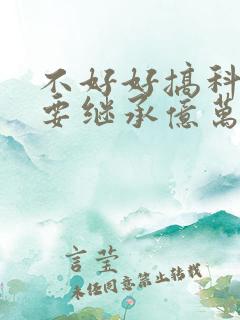 不好好搞科
要继承億萬
言莹
未经同意禁止转载